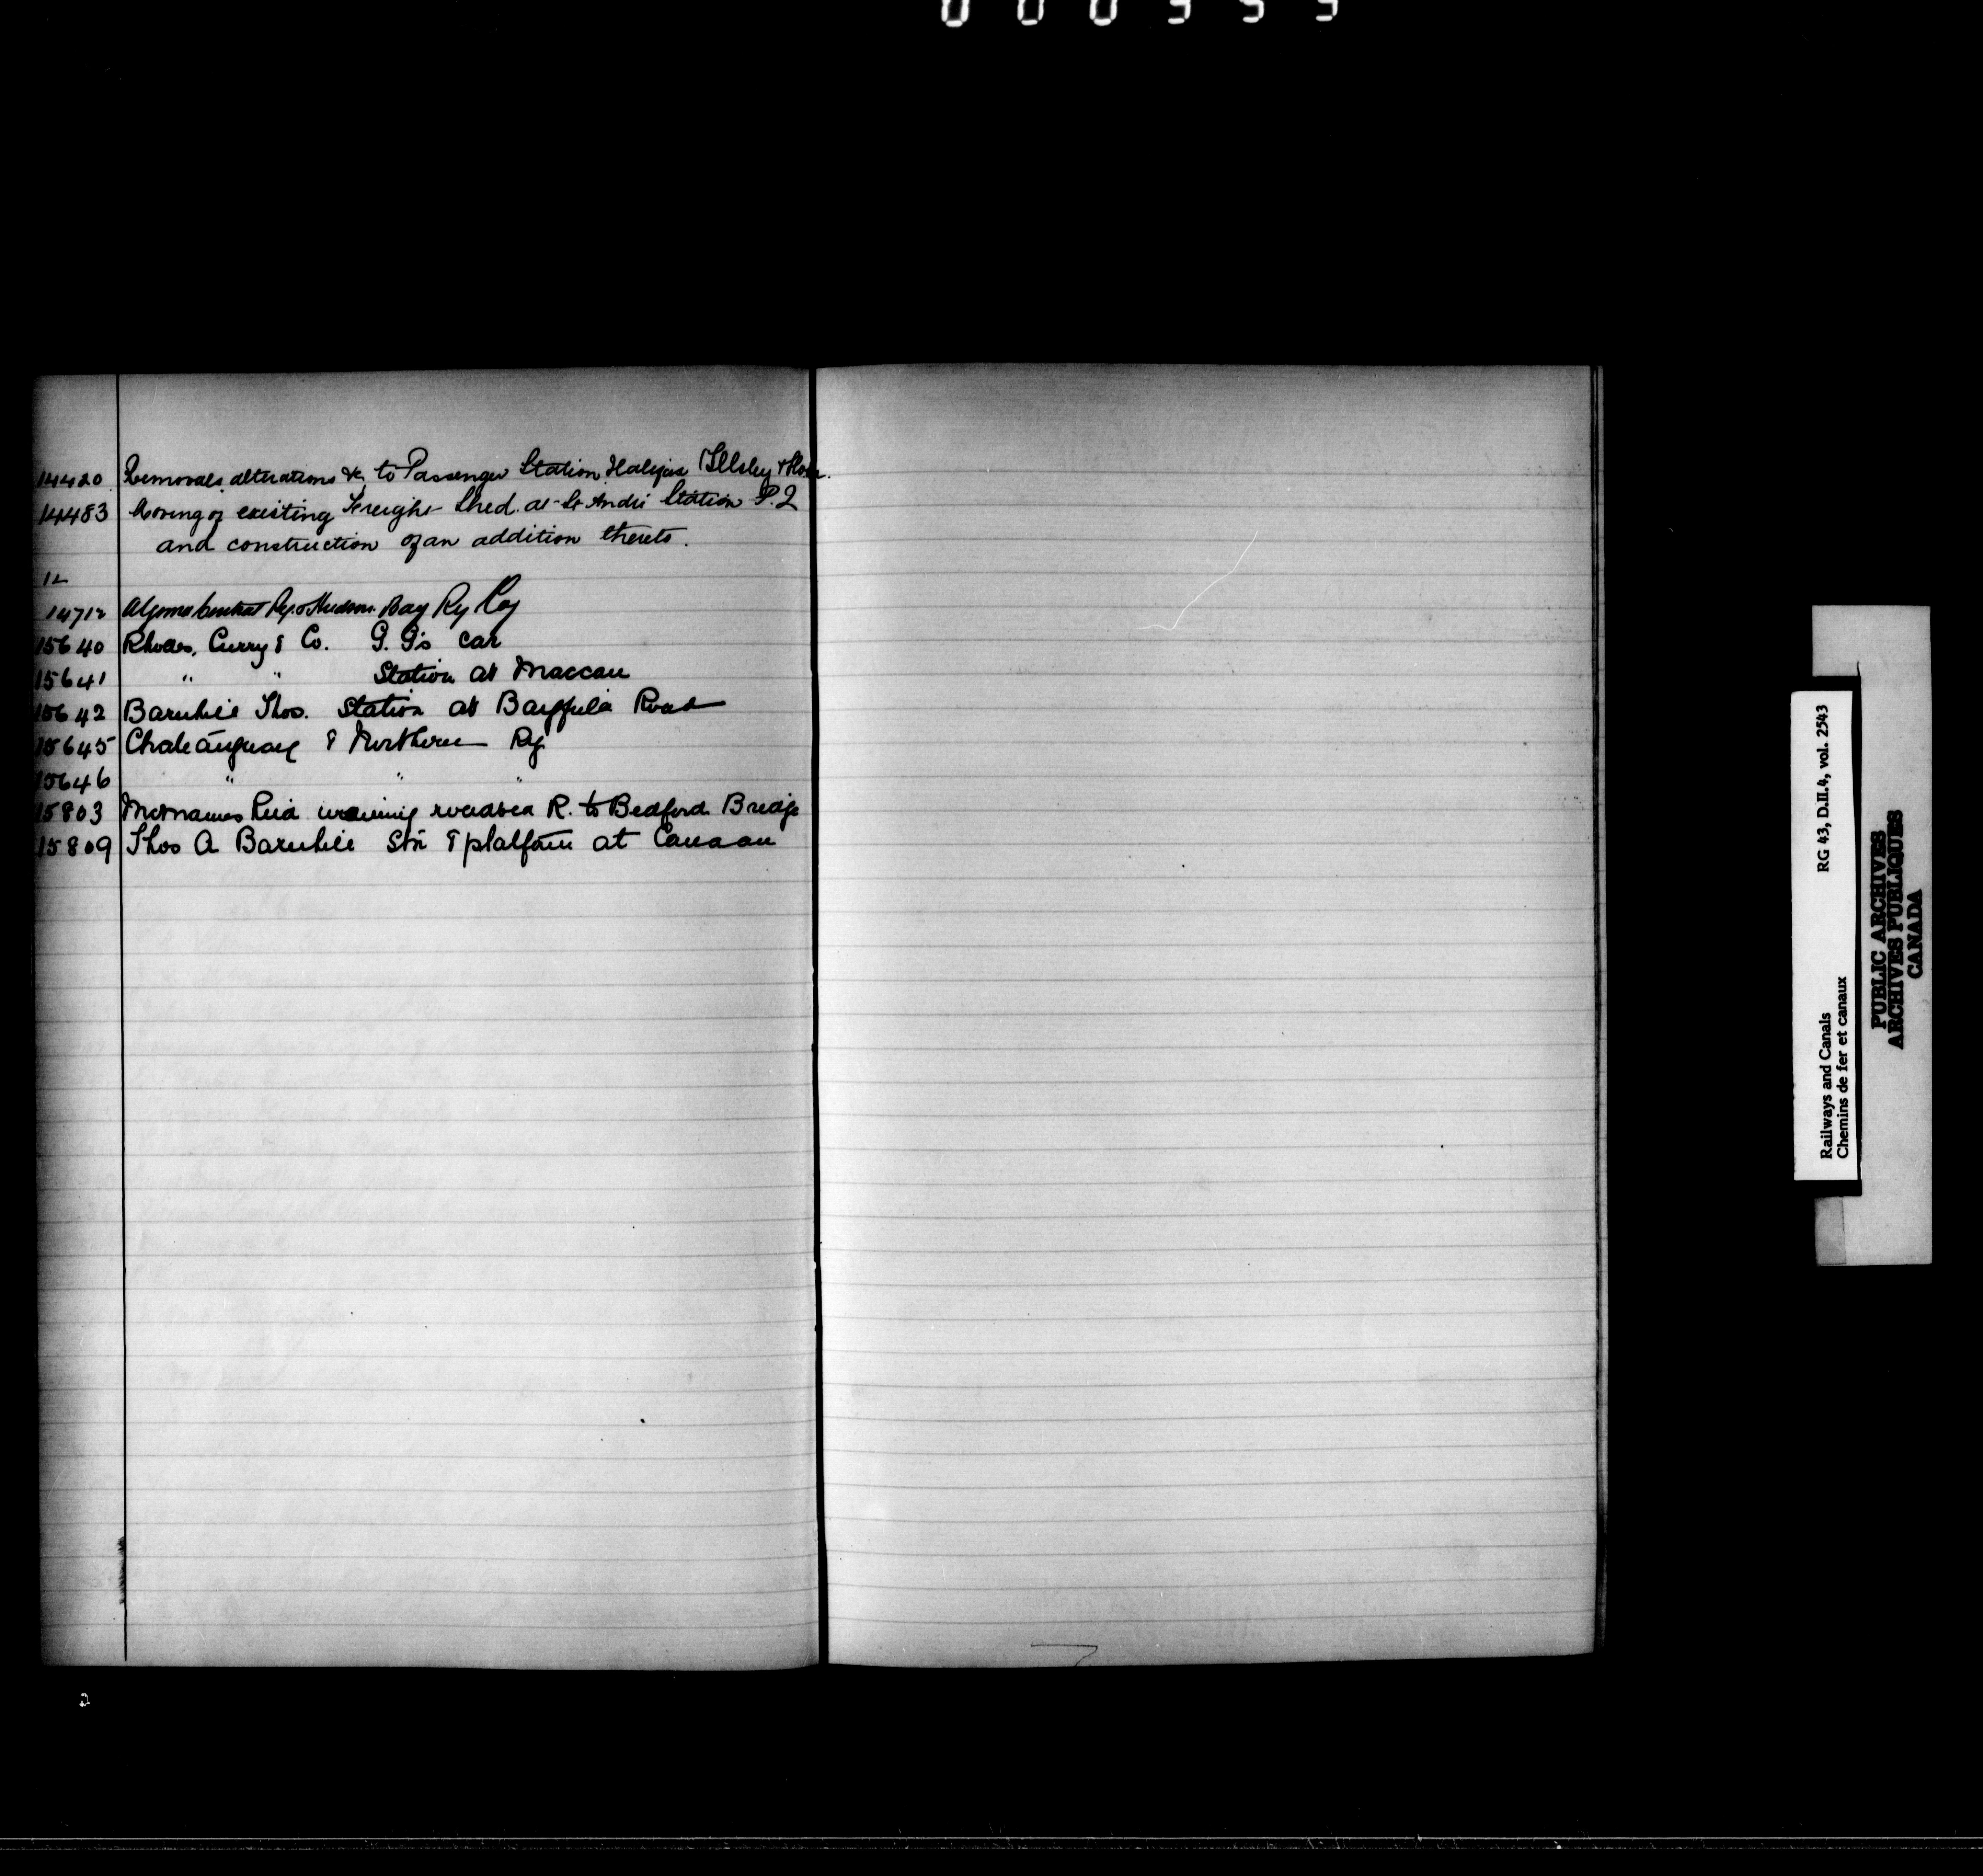 14420 Removals, alterations &c, to Passenger Station Halifax (Illsley &
14483 Moving of existing Freight Shed at St André Station P.Q
and construction of an addition thereto.
12
14712 Algoma Central Ry. & Hudson Bay Ry Coy
15640 Rhodes, Curry & Co. G. G's car
15641 " " Station at Maccan
15642 Barnhill Thos. Station at Bayfield Road
15645 Chateauguay & Northern Ry.
15646 " " "
15803 R. to Bedford Bridge
15809 Thos A Barnhill Stn & platform at Canaan
2
Railways and Canals RG 43, D.II.4, vol. 2543
Chemins de fer et canaux
PUBLIC ARCHIVES
ARCHIVES PUBLIQUES
CANADA